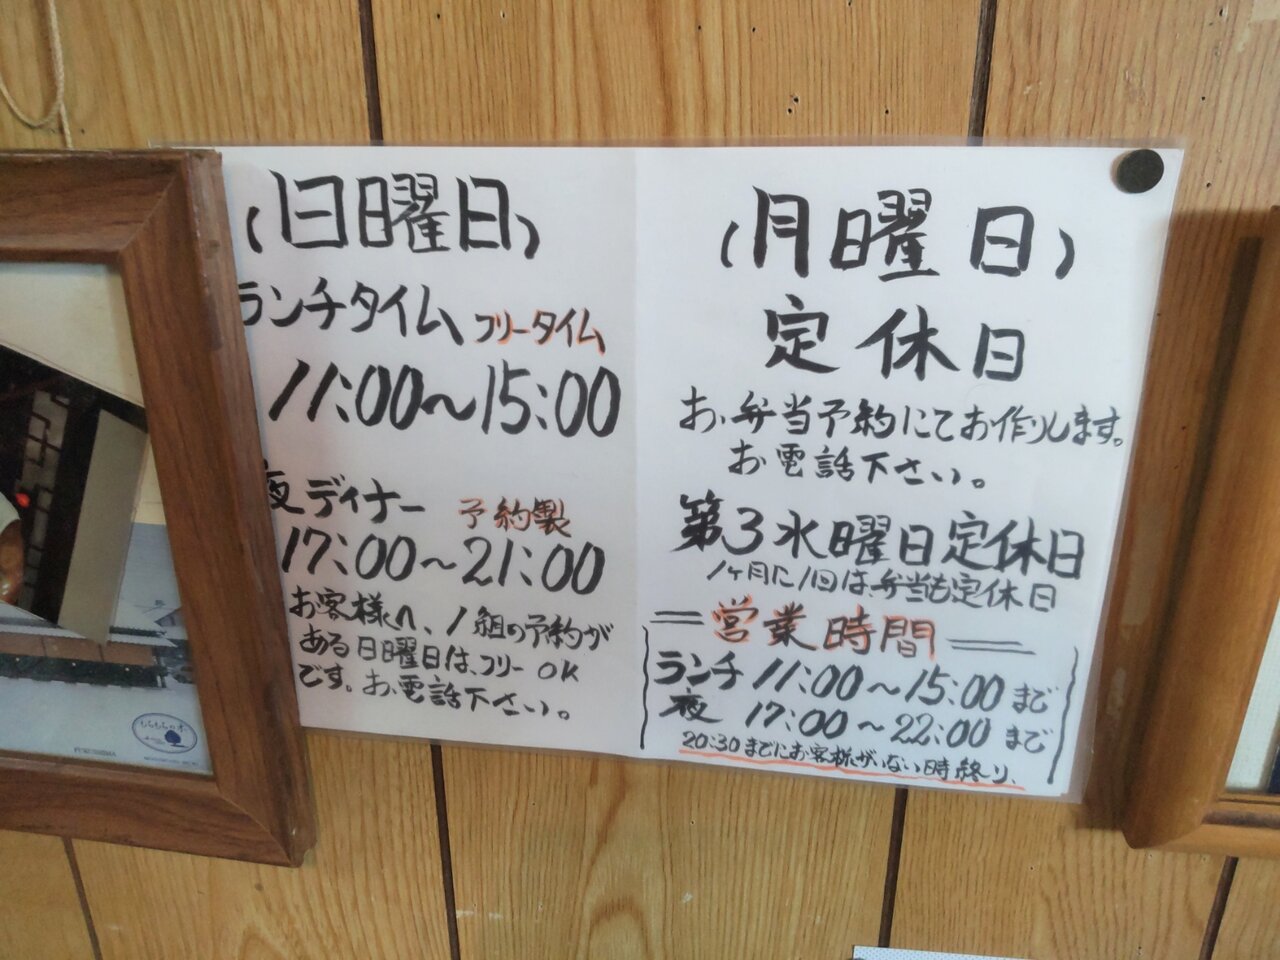 (日曜日)
ランチタイム フリータイム
11:00～15:00
夜ディナー 予約製
17:00～21:00
お客様へ、1組の予約が
ある日曜日は、フリーOK
です。お電話下さい。
(月曜日)
定休日
お弁当予約にてお作りします。
お電話下さい。
第3水曜日定休日
1ヶ月に1回は、弁当も定休日
営業時間
ランチ 11:00～15:00 まで
夜 17:00～22:00 まで
20:30までにお客様がいない時終り、